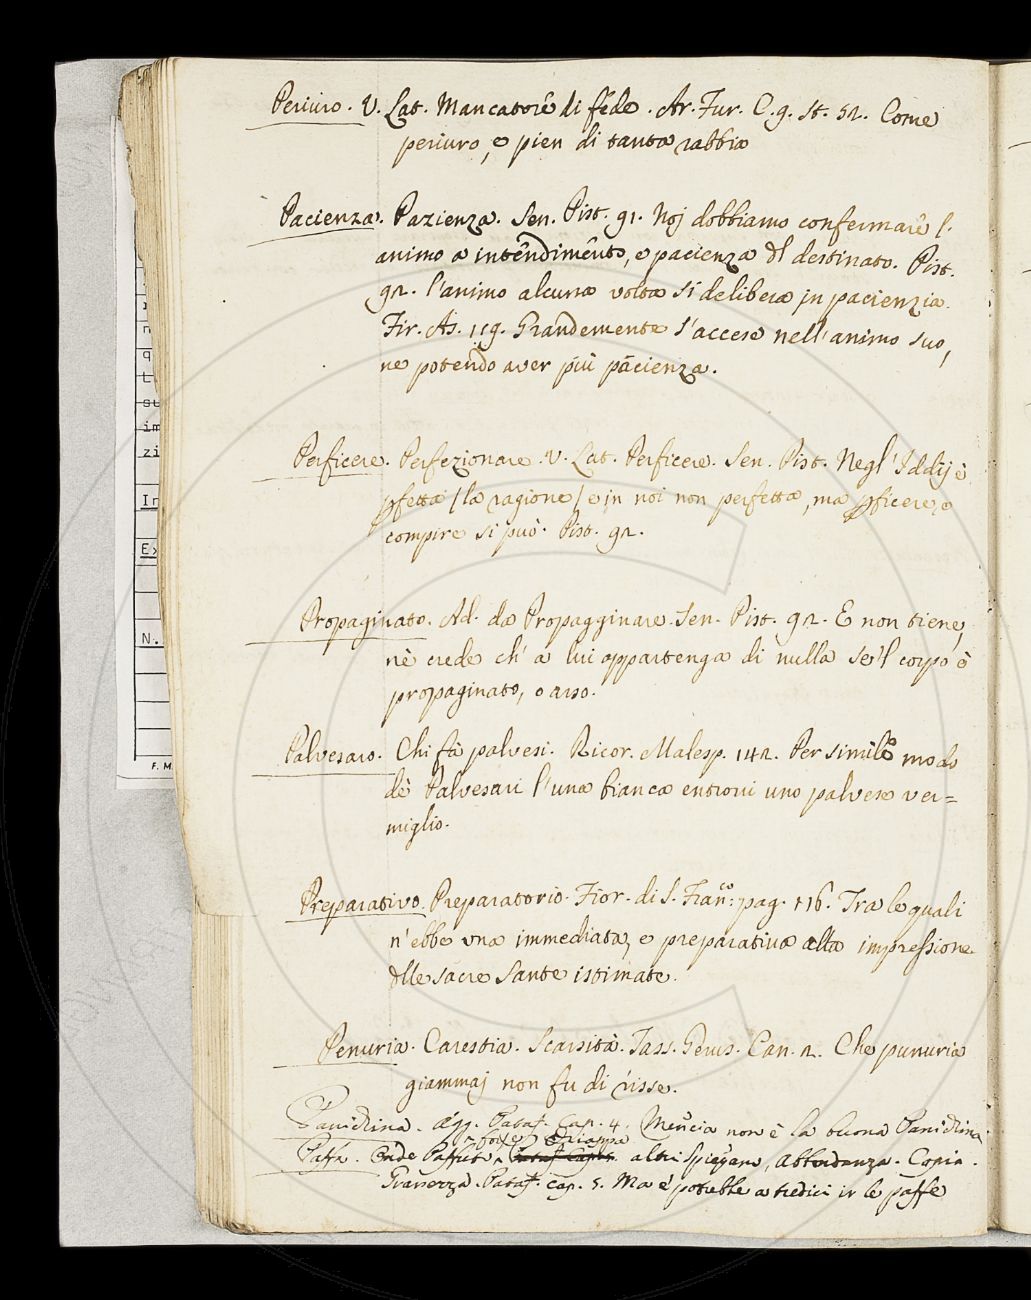 Periuro. V. Lat. Mancatore di fede. Ar. Fur. C. 9. st. 52. Come
periuro, e pien di tanta rabbia
Pacienza. Pazienza. Sen. Pist. 91. Noj dobbiamo confermare l'
animo a intendimento, e pacienza dl destinato. Pist.
92. l'animo alcuna volta si delibera jn pacienzia.
Fir. As. 119. Grandemente s'accese nell'animo suo,
ne potendo aver più pacienza.
Perficere. Perfezionare. V. Lat. Perficere. Sen. Pist. Negl'Iddij è
pfetta / la ragione / e jn noi non perfetta, ma pficere, e
compire si può. Pist. 92.
Propaginato. Ad. da Propagginare. Sen. Pist. 92. E non tiene,
nè crede ch' a lui appartenga di nulla se'l corpo è
propaginato, o arso.
Palvesaro. Chi fà palvesi. Ricor. Malesp. 142. Per simile modo
de Palvesari l'una bianca entrovi uno palvese ver=
miglio.
Preparativo. Preparatorio. Fior. di S. Fran.co: pag. 116. Tra le quali
n'ebbe una immediata, e preparativa alla impressione
dlle sacre Sante istimate.
Penuria. Carestia. Scarsità. Tass. Gerus. Can. 2. Che punuria
giammaj non fu di risse.
Panichina. Agg. Pataf. Cap. 4. Mencia non è la buona Panichina
forse Chiappa
Paffa. Onde Paffuto, altri spiegano, Abbondanza. Copia.
Grassezza. Pataf. cap. 5. Ma e' potrebbe a tredici ir le paffe
F. M